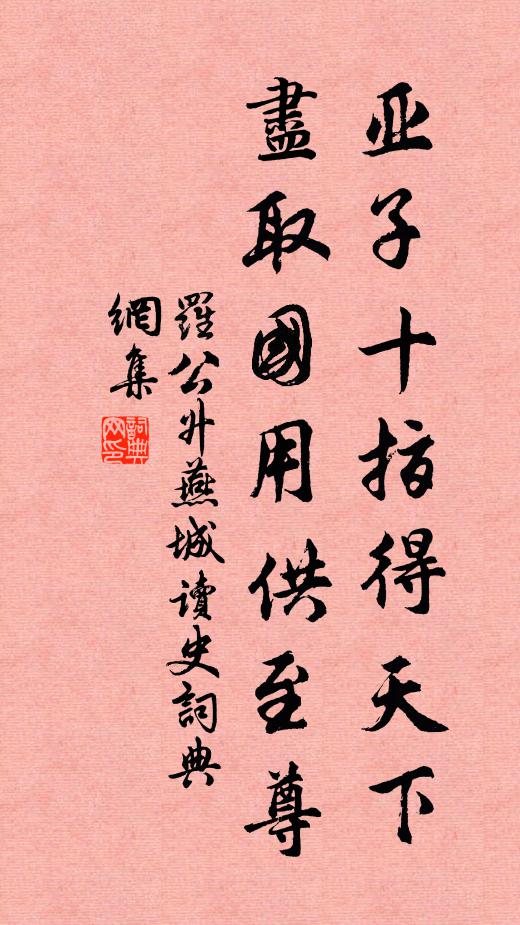 亚子十指得天下
盡取國用供至尊
羅公升燕城讀史詞典
網集
詞典网印